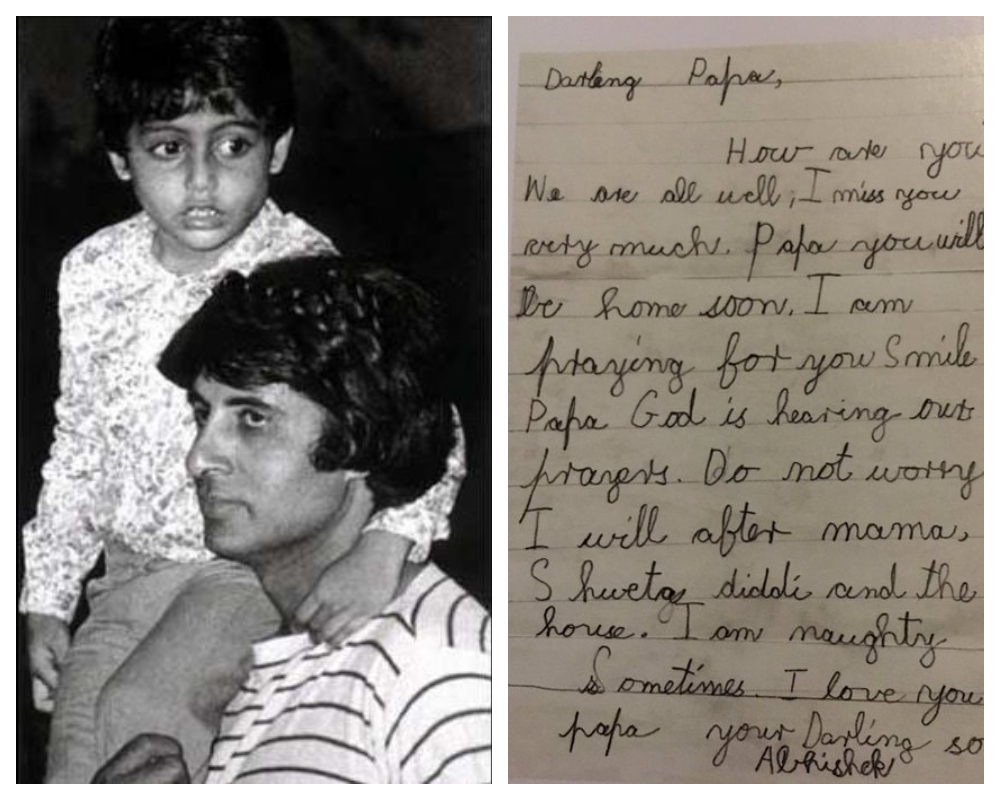 Darling Papa,
How are you
We are all well, I miss you
very much. Papa you will
be home soon. I am
praying for you Smile
Papa God is hearing our
prayers. Do not worry
I will after mama,
Shweta diddi and the
house. I am naughty
Sometimes. I love you
papa your Darling so
Abhishek